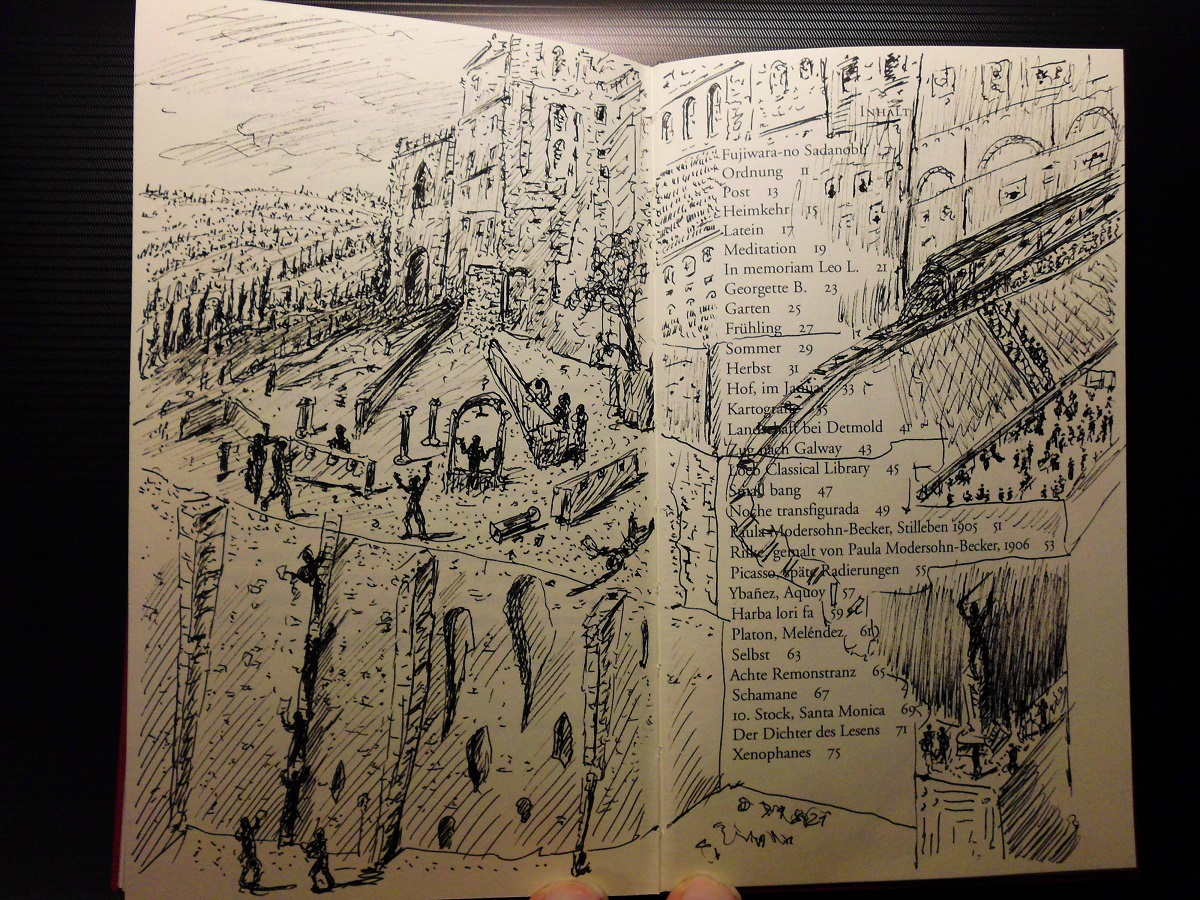 INHALT
Fujiwara-no Sadanobu 7
Ordnung 11
Post 13
Heimkehr 15
Latein 17
Meditation 19
In memoriam Leo L. 21
Georgette B. 23
Garten 25
Frühling 27
Sommer 29
Herbst 31
Hof, im Januar 33
Kartografie 35
Landschaft bei Detmold 41
Zug nach Galway 43
Loeb Classical Library 45
Small bang 47
Noche transfigurada 49
Paula Modersohn-Becker, Stilleben 1905 51
Rilke, gemalt von Paula Modersohn-Becker, 1906 53
Picasso, späte Radierungen 55
Ybañez, Aquoy 57
Harba lori fa 59
Platon, Meléndez 61
Selbst 63
Achte Remonstranz 65
Schamane 67
10. Stock, Santa Monica 69
Der Dichter des Lesens 71
Xenophanes 75